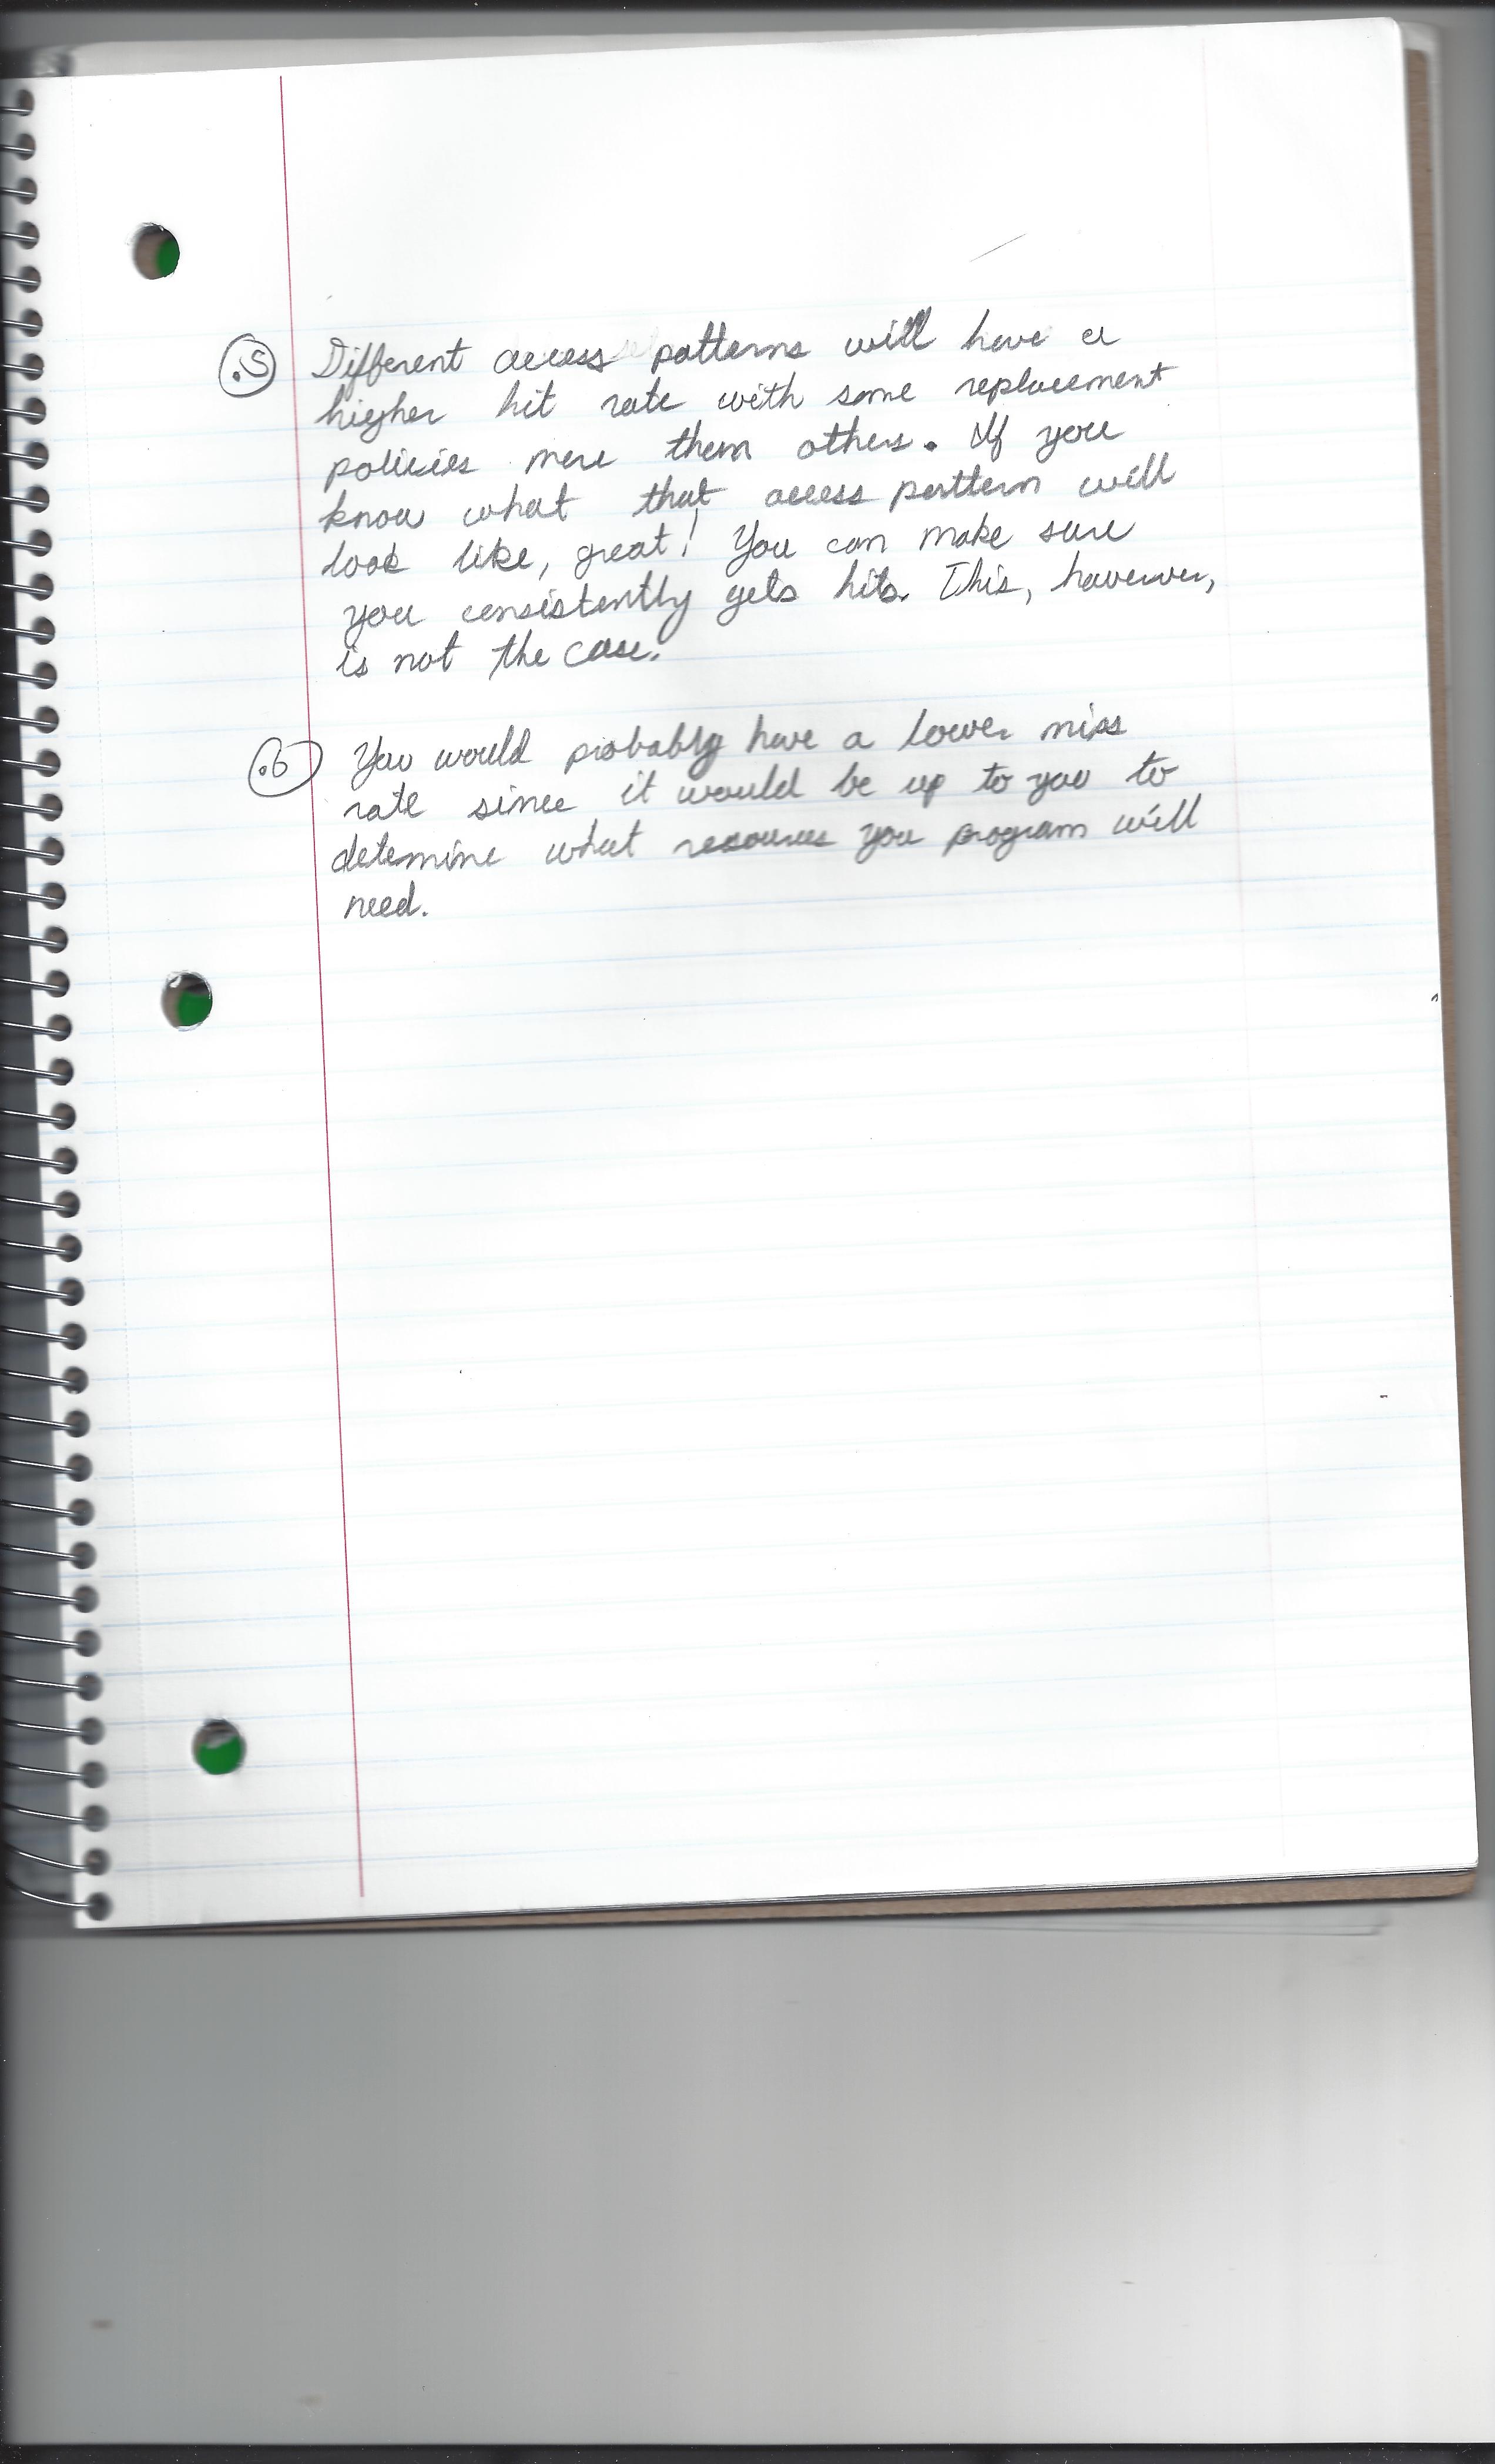 .5 Different access patterns will have a
higher hit rate with some replacement
policies more than others. If you
know what that access pattern will
look like, great! You can make sure
you consistently gets hits. This, however,
is not the case.
.6 You would probably have a lower miss
rate since it would be up to you to
detemine what resources you program will
need.